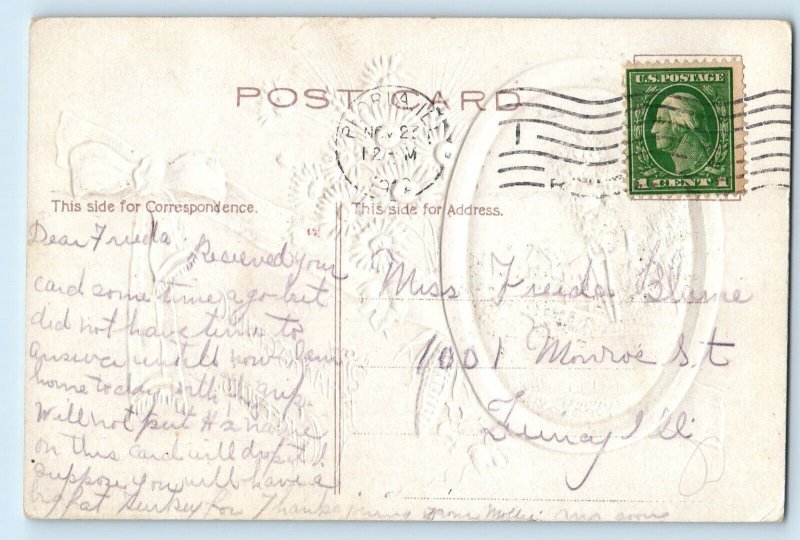 U.S. POSTAGE
1 CENT 1
POST CARD
PEORIA, ILL.
NOV 23
12 M
This side for Correspondence.
This side for Address.
Dear Frieda Recieved your
card some time ago but
did not have time to
answer untill now I am
home to day with grip.
Will not put name
on this card will drop it I
suppose you will have a
big fat turkey for Thanksgiving from Mollie
Miss Freida Blume
1001 Monroe St
Quincy Ill